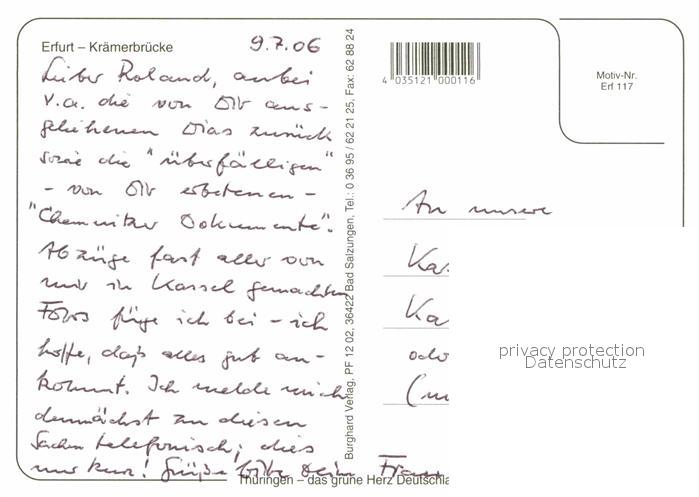 Erfurt – Krämerbrücke
9.7.06
Lieber Roland, anbei
v.a. die von Dir aus-
geliehenen Dias zurück
sowie die "überfälligen"
- von Dir erbetenen -
"Chemnitzer Dokumente".
Abzüge fast aller von
mir in Kassel gemachten
Fotos füge ich bei - ich
hoffe, daß alles gut an-
kommt. Ich melde mich
demnächst zu diesen
Sachen telefonisch; dies
nur kurz! Grüße Dein
Burghard Verlag, PF 12 02, 36422 Bad Salzungen, Tel.: 0 36 95 / 62 21 25, Fax: 62 88 24
4 035121 000116
Motiv-Nr.
Erf 117
An unsere
Kas
Ka
oder
privacy protection
Datenschutz
Thüringen – das grüne Herz Deutschla